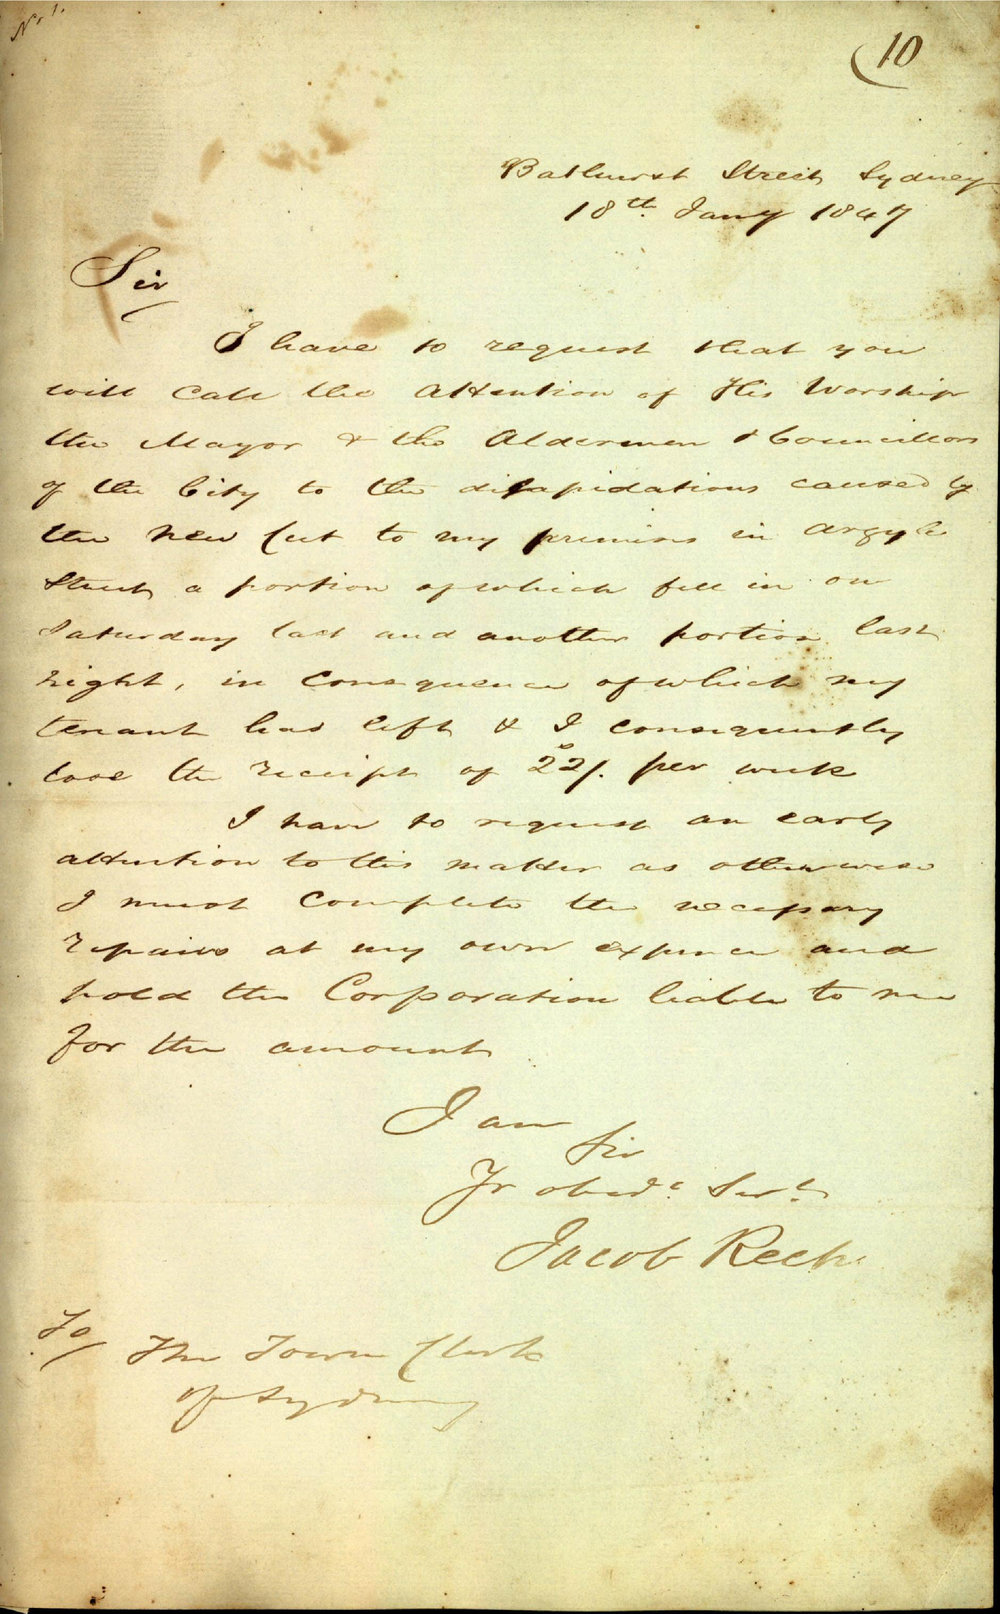 No. 1.
10
Bathurst Street Sydney
18th Jany 1847
Sir
I have to request that you
will call the Attention of His Worship
the Mayor & the Aldermen & Councillors
of the City to the dilapidations caused by
the New Cut to my premises in Argyle
Street a portion of which fell in on
Saturday last and another portion last
night, in consequence of which my
tenant has left & I consequently
lose the receipt of 22/. per week
I have to request an early
attention to this matter as otherwise
I must complete the necessary
repairs at my own expence and
hold the Corporation liable to me
for the amount
I am
Sir
Yr obedt Servt
Jacob
To/
The Town Clerk
of Sydney